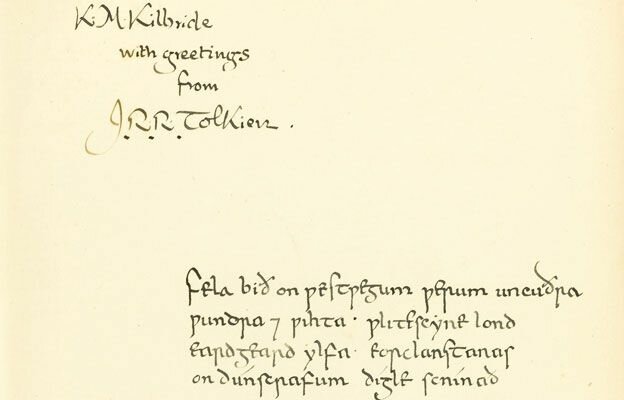 K.M. Kilbride
with greetings
from
J.R.R. Tolkien.
Fela bið on ƿestƿegum ƿerum uncúðra
ƿundra ⁊ ƿihta · ƿlitescyne lond
eardgeard ylfa · eorclanstanas
on dúnscrafum digle scninað